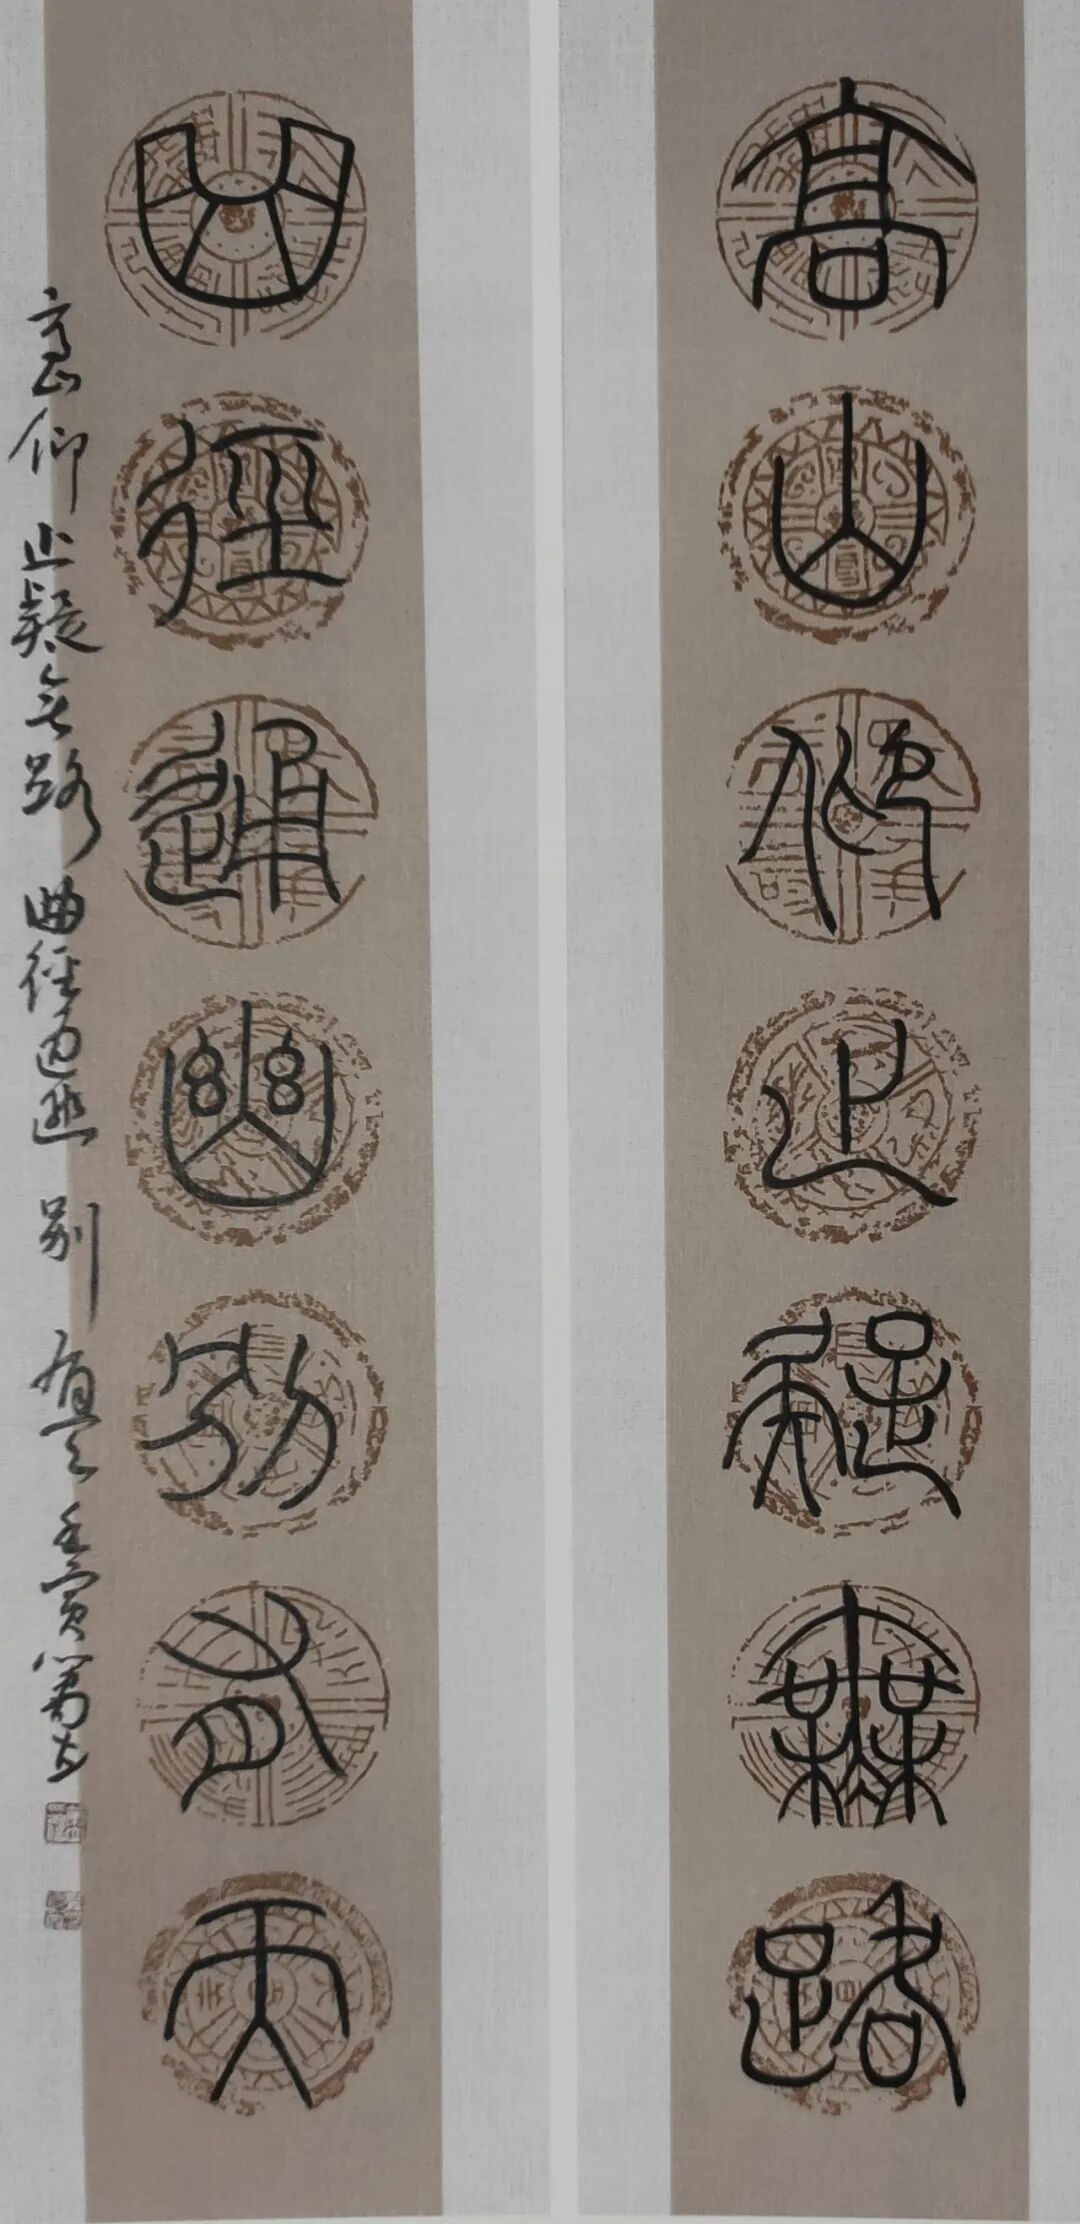 高山仰止疑無路
曲徑通幽別有天
高山仰止疑無路曲徑通幽別有天壬寅